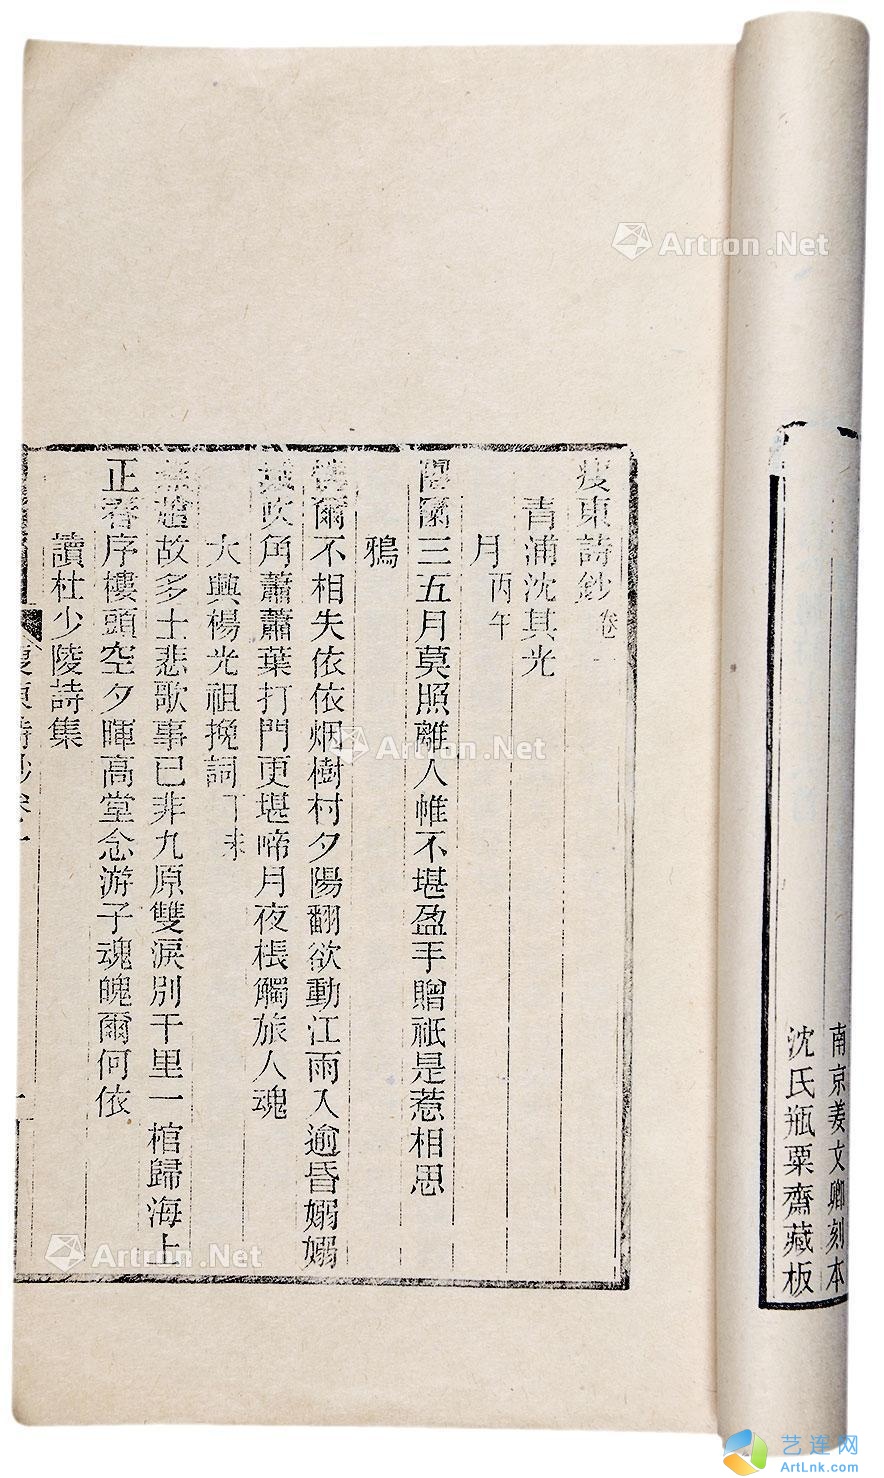 南京姜文卿刻本
沈氏瓶粟齋藏板
瘦東詩鈔 卷一
青浦沈其光
月 丙午
三五月莫照離人帷不堪盈手贈祇是惹相思
鴉
爾不相失依依烟樹村夕陽翻欲動江雨入逾昏嫋嫋
城吹角蕭蕭葉打門更堪啼月夜棖觸旅人魂
大興楊光祖挽詞 丁未
燕趙故多士悲歌事已非九原雙淚別千里一棺歸海上
正春序樓頭空夕暉高堂念游子魂魄爾何依
讀杜少陵詩集
瘦東詩鈔卷一
一
Artron.Net
Artron.Net
Artron.Net
艺连网
ArtLnk.com